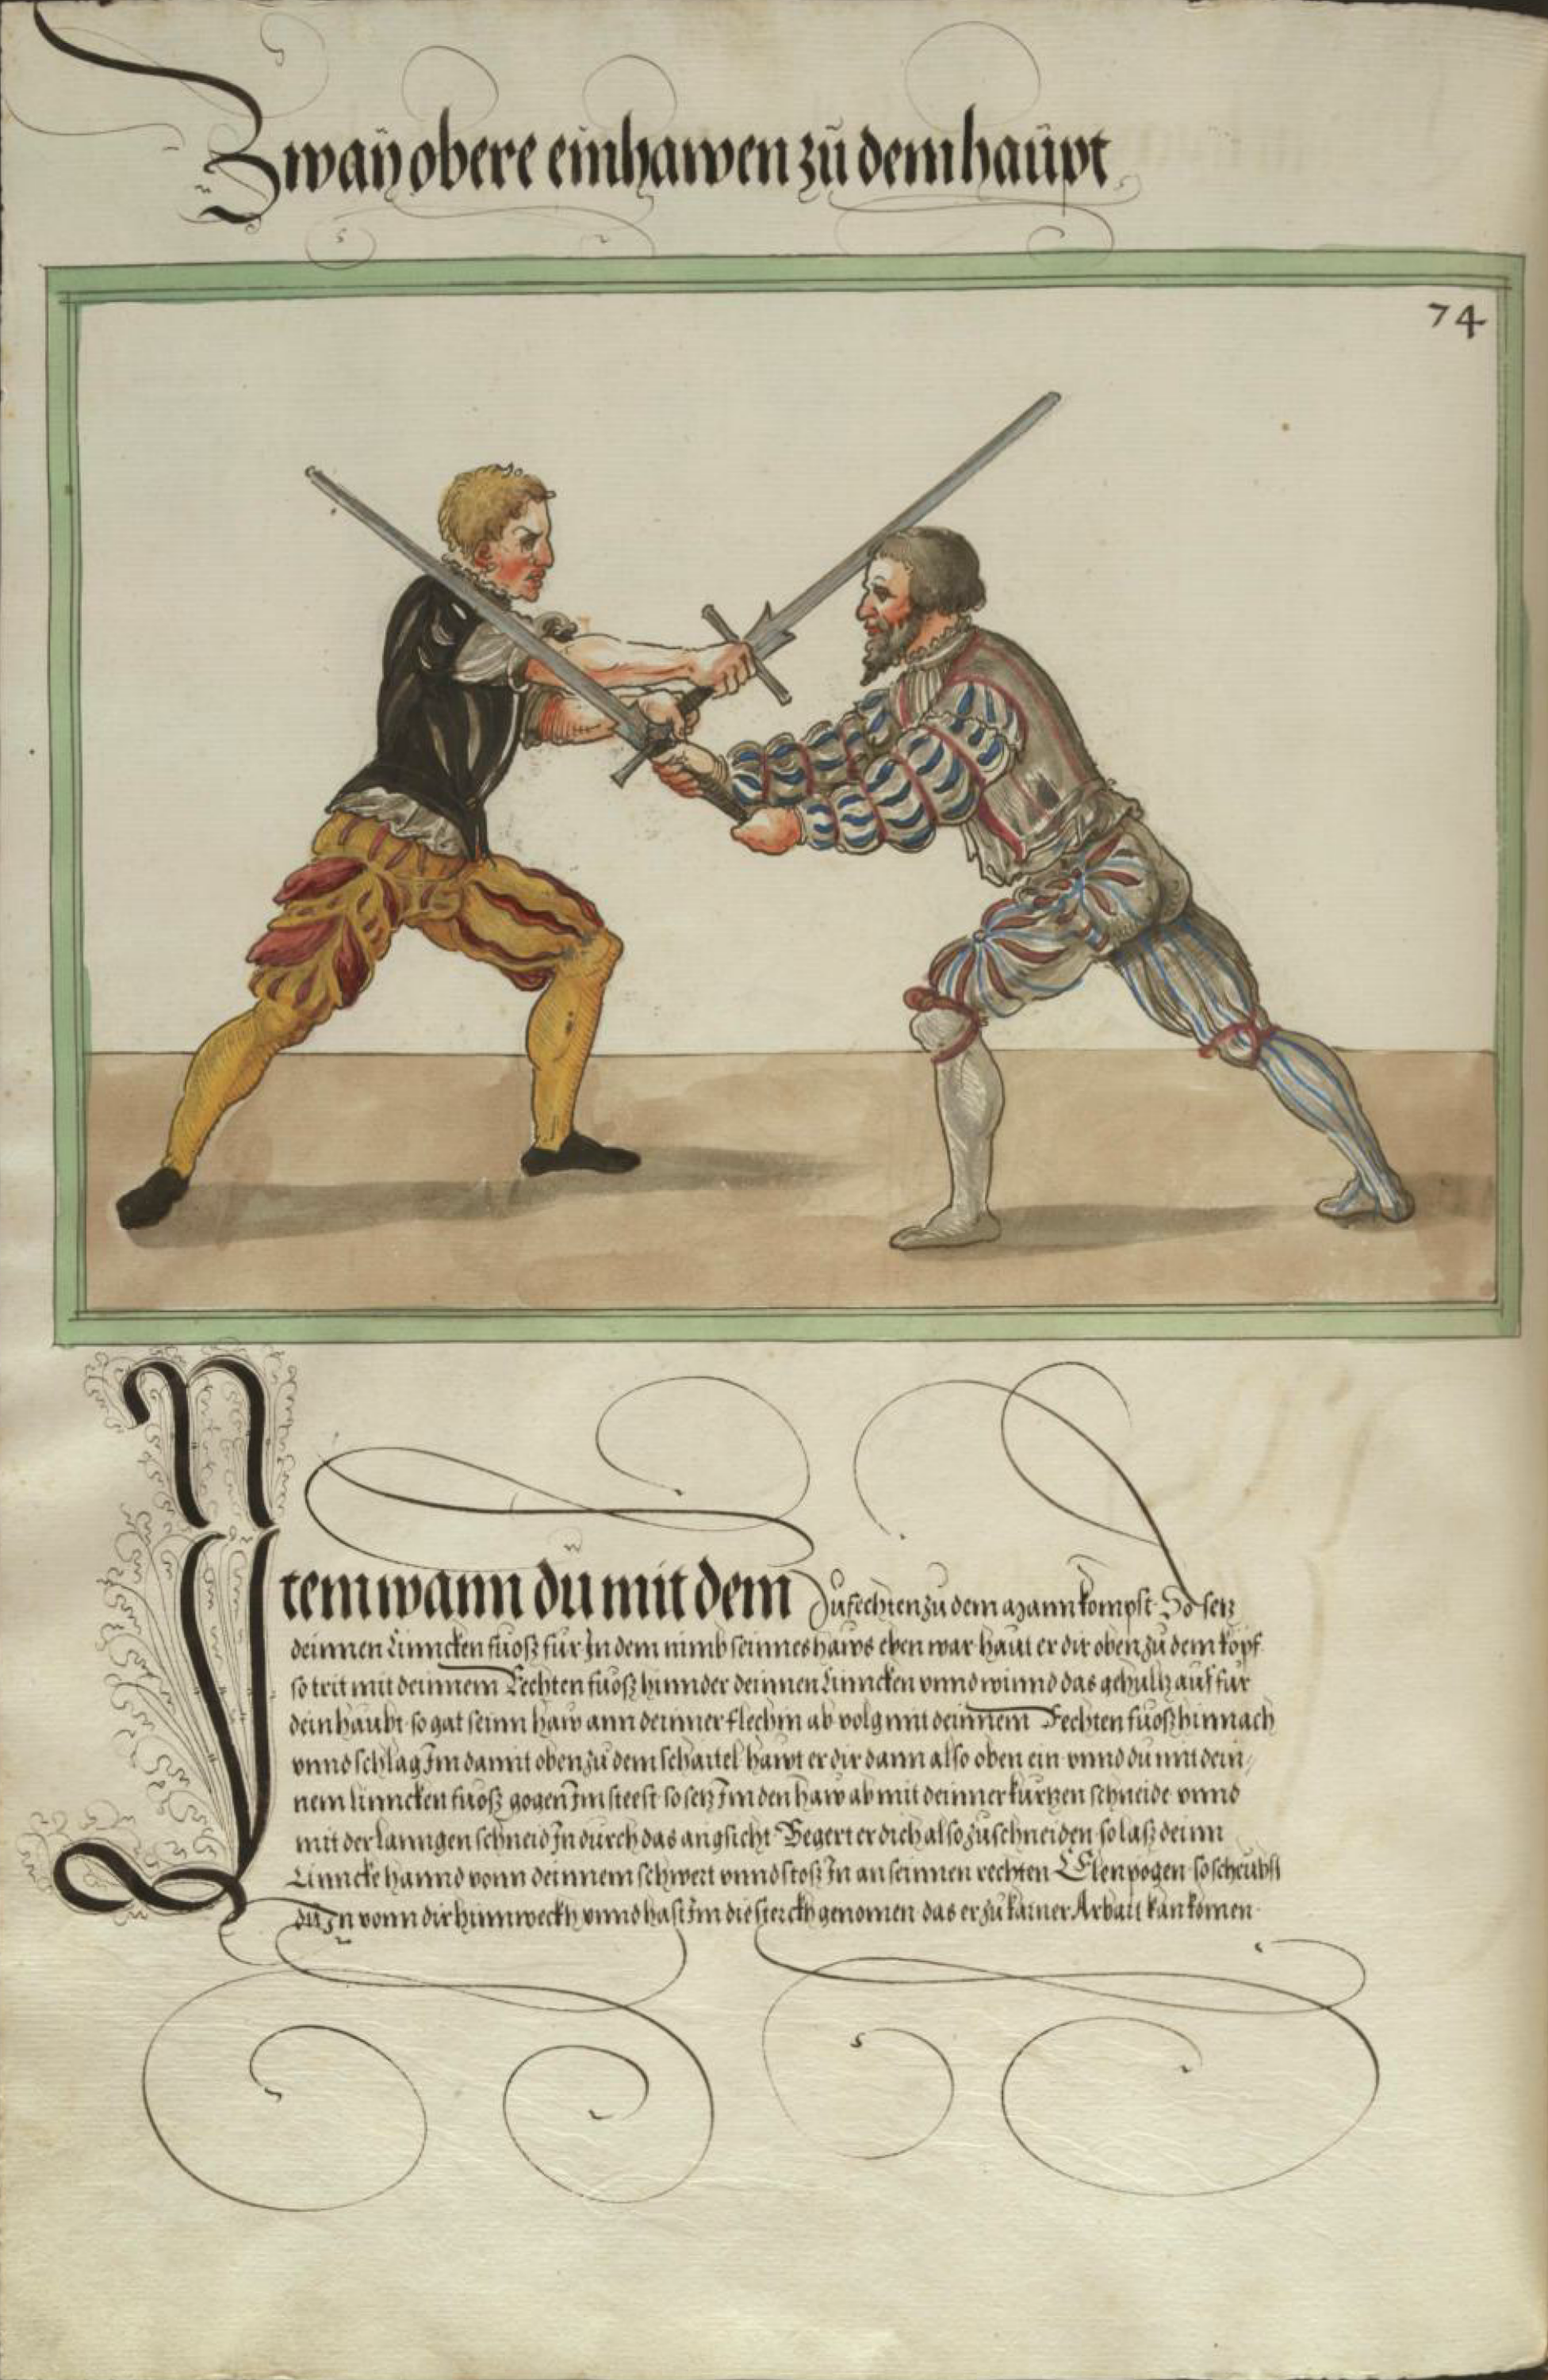 Zwaÿ obere einhawen zů dem haüpt
74
Item wann dü mit dem Zufechten zu dem Mann kompst So setz
deinnen Linncken fuosz für In dem nimb seinnes haws eben war haut er dir oben zu dem kopf
so trit mit deinnem Rechten fuosz hinnder deinnen Linncken vnnd winnd das gehultz auf für
dein haubt so gat seinn haw ann deinner flechin ab volg mit deinnem Rechten fuosz hinnach
vnnd schlag Im damit oben zu dem schaitel hawt er dir dann also oben ein vnnd du mit dein/
nem linncken fuosz gogen Im steest so setz Im den haw ab mit deinner kurtzen schneide vnnd
mit der lanngen schneid In durch das angsicht Begert er dich also zu schneiden so lasz deinn
Linncke hannd vonn deinnem schwert vnnd stosz In an seinnen rechten Elenpogen so scheubst
du In vonn dir hinnweckh vnnd hast Im die sterckh genomen das er zu kainer Arbait kan komen